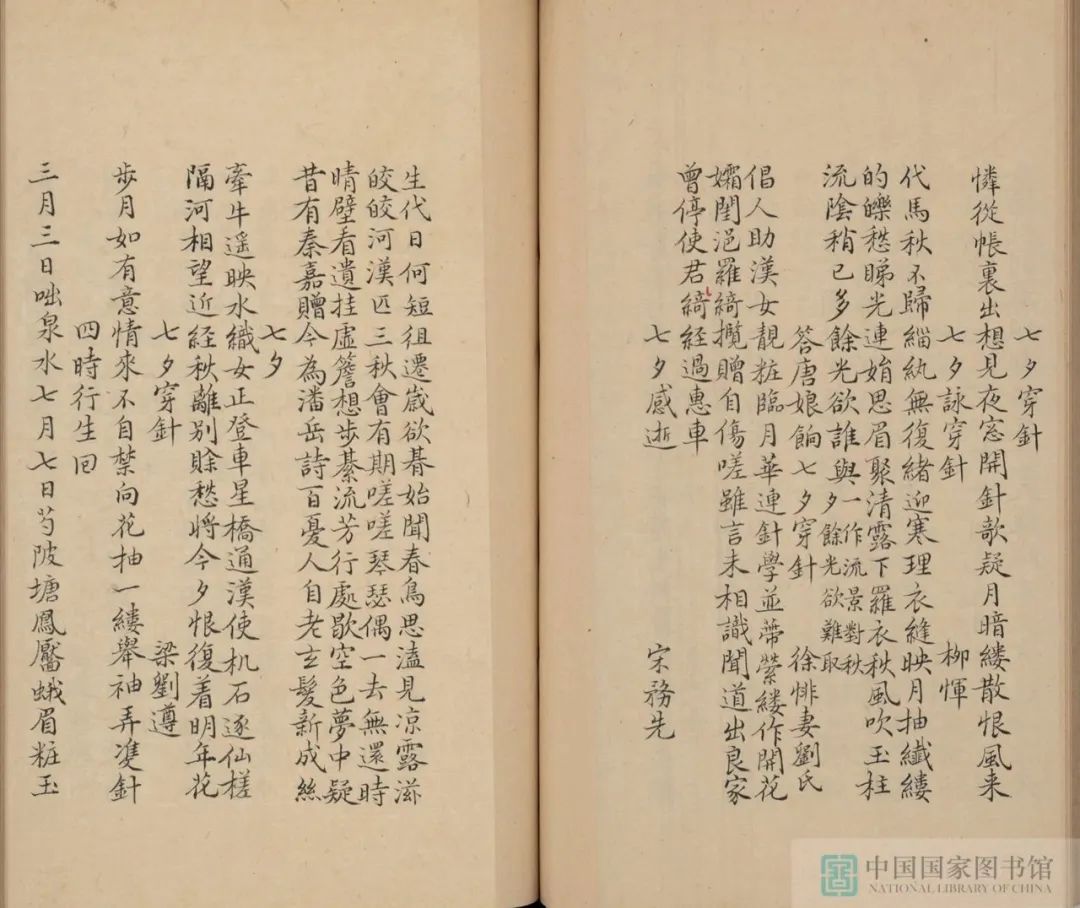 七夕穿針
憐從帳裏出想見夜窓開針欹疑月暗縷散恨風来
七夕詠穿針 柳惲
代馬秋不歸緇紈無復緒迎寒理衣縫映月抽纖縷
的皪愁睇光連娟思眉聚清露下羅衣秋風吹玉柱
流陰稍已多餘光欲誰與一作流景對秋夕餘光欲難取
答唐娘餉七夕穿針 徐悱妻劉氏
倡人助漢女靚粧臨月華連針學並蔕縈縷作開花
孀閨浥羅綺攬贈自傷嗟雖言未相識聞道出良家
曾停使君綺經過惠車
七夕感逝 宋務先
生代日何短徂遷歳欲朞始聞春鳥思溘見凉露滋
皎皎河漢匹三秋會有期嗟嗟琴瑟偶一去無還時
晴壁看遺挂虚簷想歩綦流芳行處歇空色夢中疑
昔有秦嘉贈今為潘岳詩百憂人自老玄髮新成絲
七夕
牽牛遥映水織女正登車星橋通漢使机石逐仙槎
隔河相望近経秋離别賖愁將今夕恨復着明年花
七夕穿針 梁劉遵
歩月如有意情來不自禁向花抽一縷舉袖弄雙針
四時行生回
三月三日咄泉水七月七日芍陂塘鳳靨蛾眉粧玉
中国国家图书馆
NATIONAL LIBRARY OF CHINA